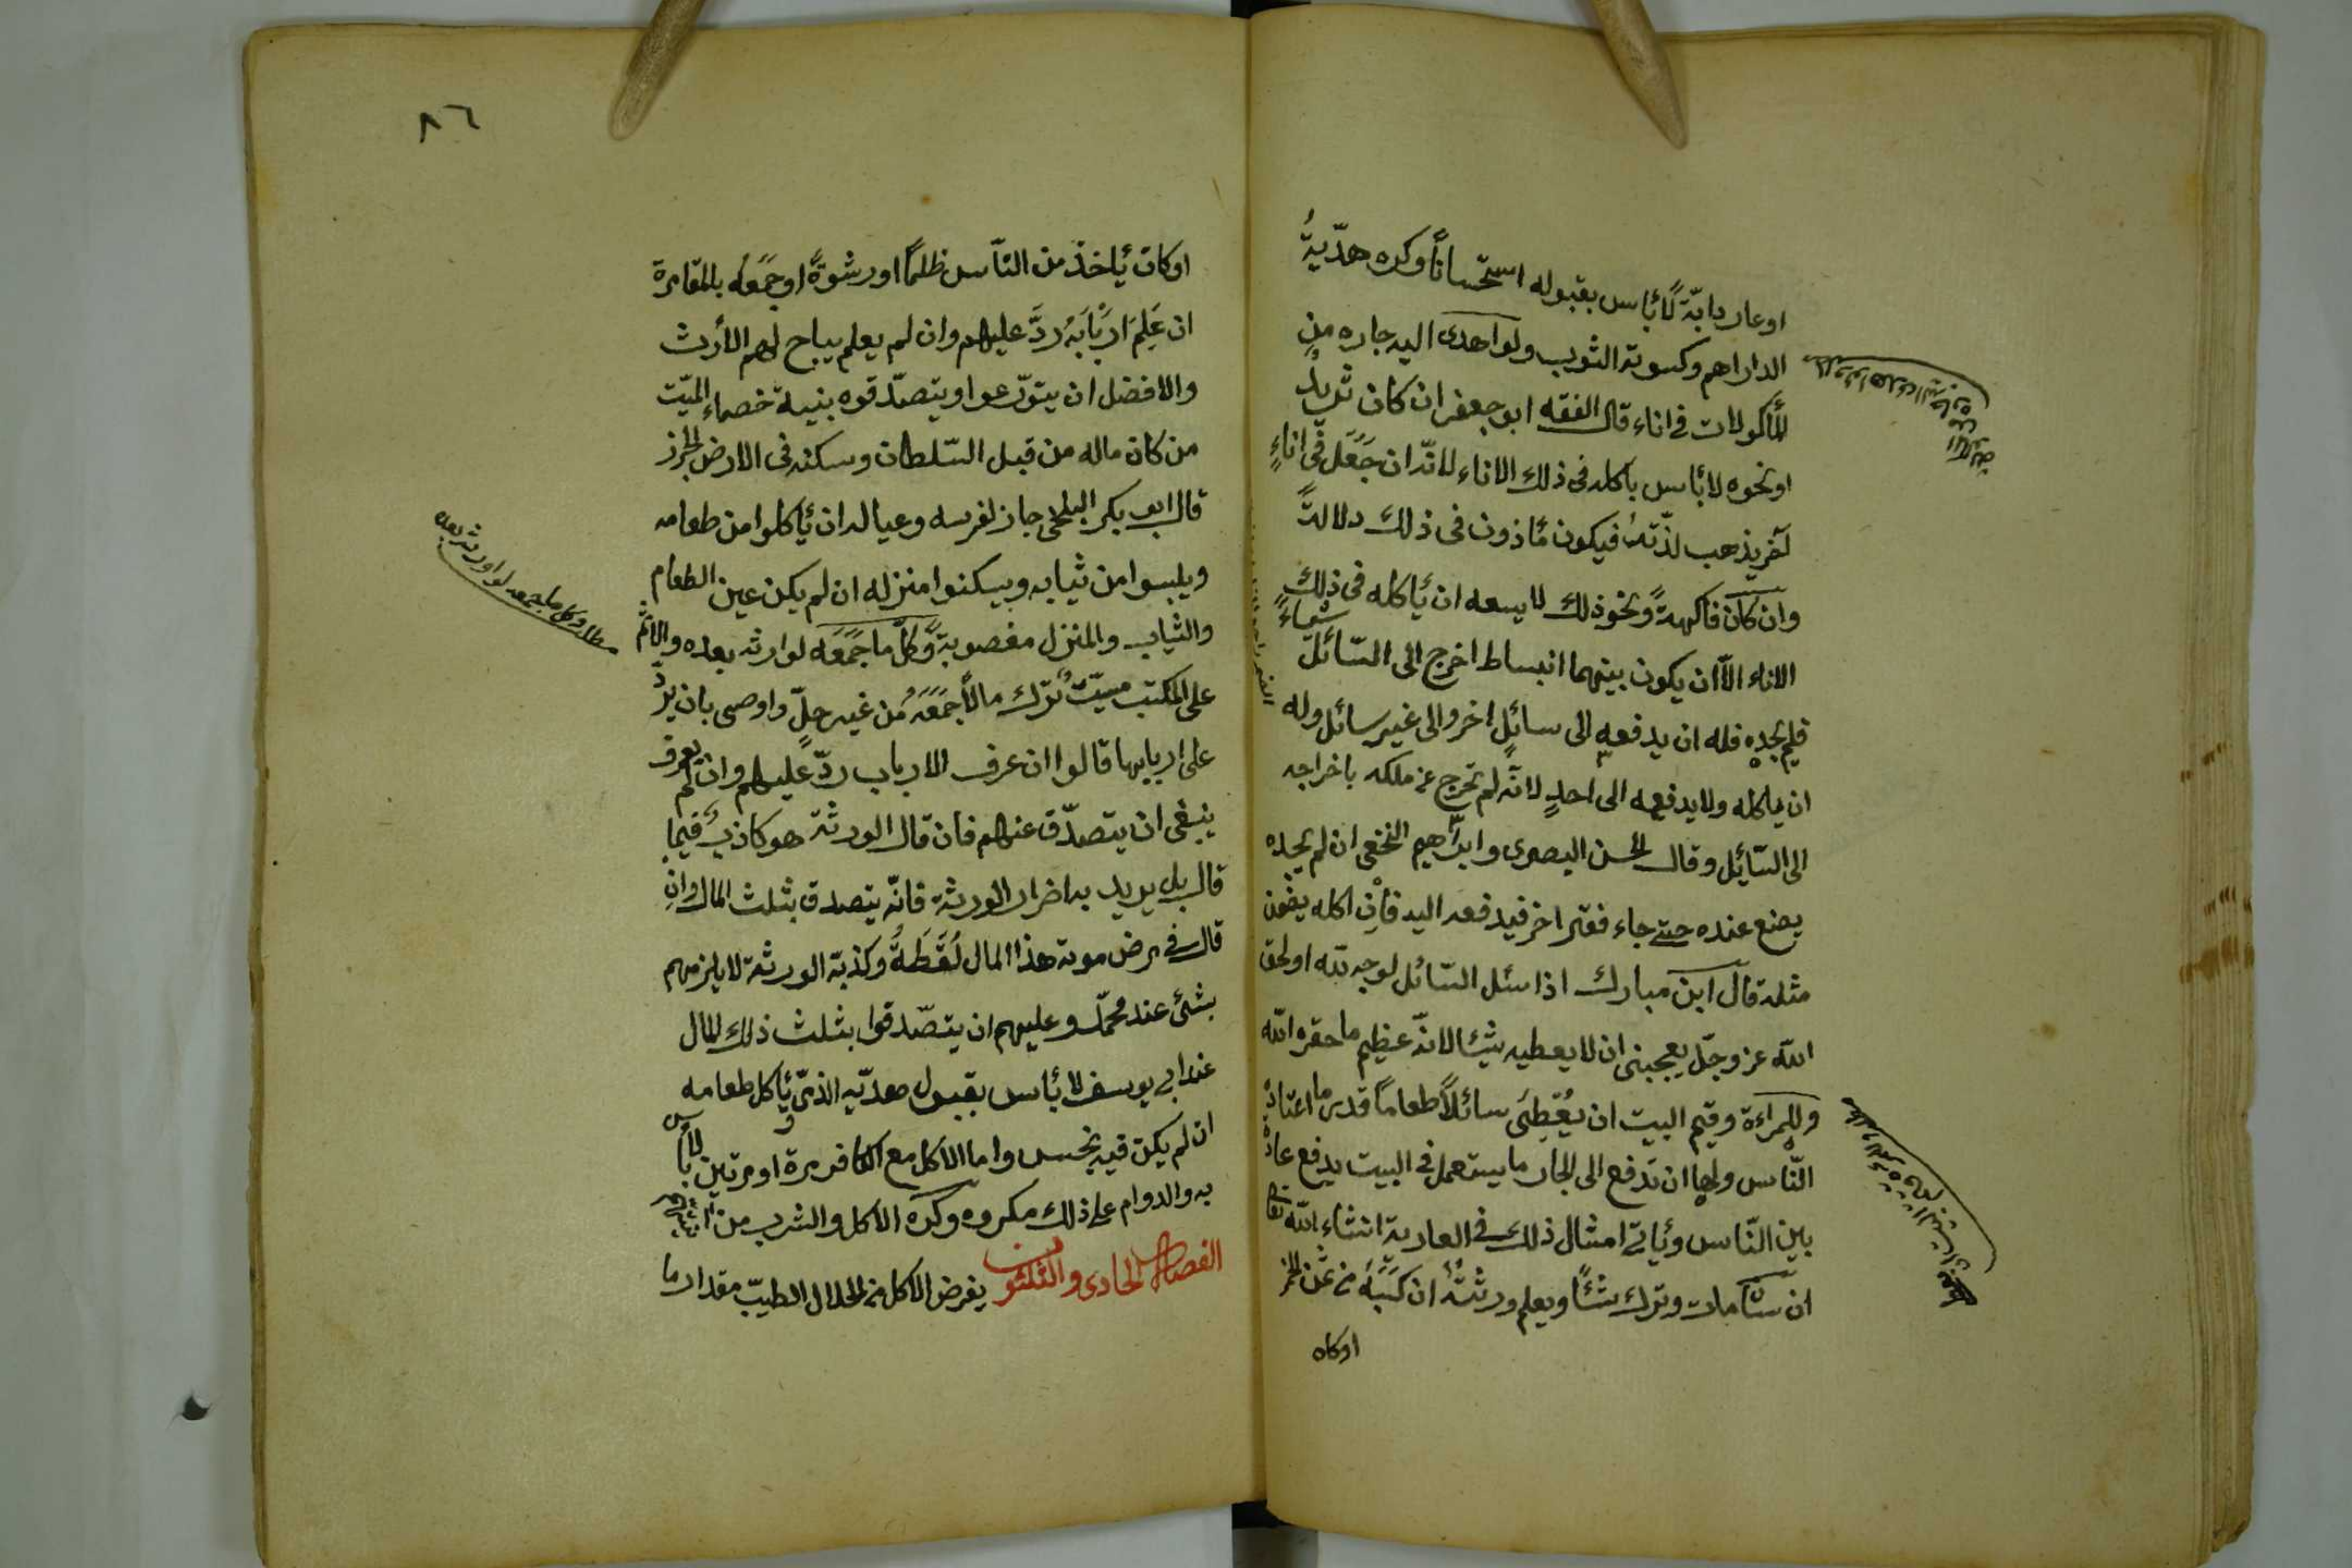 او عار دابّة لا بأس بقبوله استحساناً وكره هديّةُ
الداراهم وكسوته الثوب ولو اهدى اليه جاره من
المأكولات فى اناء قال الفقه ابو جعفر ان كان ثريدٌ
او نحوه لا بأس باكله فى ذلك الاناء لانّه ان جَعَل فى اناءٍ
آخر يذهب لذّتهُ فيكون مأذون فى ذلك دلالةً
وان كان فاكهةً ونحو ذلك لا يسعه ان يأكله فى ذلك
الاناء الاّ ان يكون بينهما انبساط اخرج الى السّائل شيأً
فلم يجده فله ان يدفعه الى سائلٍ اخر والى غير سائل وله
ان يأكله ولا يدفعه الى احدٍ لانّه لم تخرج عن ملكه باخراجه
الى السّائل وقال الحسن البصرى وابراهيم النخعى ان لم يجده
يضع عنده حتى جاء فقير اخر فيدفعه اليه فان اكله يضمن
مثله قال ابن مبارك اذا سئل السّائل لوجه للّه او لحق
اللّه عز وجلّ يعجبنى ان لا يعطيه شيئا لانّه عظيم ما حقره اللّه
وللمراءة وقيم البيت ان يُعْطِىَ سائلاً طعاماً قدر ما اعتاده
النّاس ولها ان تدفع الى الجار ما يستعمل فى البيت يدفع عادة
بين النّاس ويأتى امثال ذلك فى العارية انشاء اللّه تعا
ان مات وترك شئاً ويعلم ورثتُهُ ان كَسَبَهُ من ثمن الخمر
اوكان
٨٦
اوكان يأخذ من النّاس ظلماً او رشوةً او جَمَعَهُ بالمقامرة
ان عَلِمَ اَرْبَابَهُ ردَّ عليهم وان لم يعلم يباح لهم الأرث
والافضل ان يتورّعوا ويتصدّقوه بنية خصماء الميّت
من كان ماله من قبل السّلطان وسكنه فى الارض الحرز
قال ابو بكر البلخى جاز لغرسه وعياله ان يأكلوا من طعامه
ويلبسوا من ثيابه ويسكنوا منزله ان لم يكن عين الطعام
والثياب والمنزل مغصوبة وكلّ ما جَمَعَه لوارثه بعده والاثم
على المكتب ميّتٌ ترك مالاً جَمَعَهُ من غير حلٍّ واوصى بان يردّ
على اربابها قالوا ان عرف الارباب ردّ عليهم وان لم يعرف
ينبغى ان يتصدّق عنهم فان قال الورثة هو كاذبٌ فيما
قال بل يريد به اضرار الورثة فانّه يتصدق بثلث المال وان
قال فى مرض موته هذا المال لُقَطَةٌ وكذبة الورثة لا يلزمهم
بشئ عند محمّد وعليهم ان يتصّدقوا بثلث ذلك المال
عند ابى يوسف لا بأس بقبول هديّه الذمّى يأكل طعامه
ان لم يكن فيه نجس واما الاكل مع الكافر مرة او مرتين لا بأس
به والدوام على ذلك مكروه وكره الاكل والشرب من
الفصل الحادى والثلثون يفرض الاكل من الحلال الطيّب مقدار ما
وكل ما جمعه لوارثه بعده